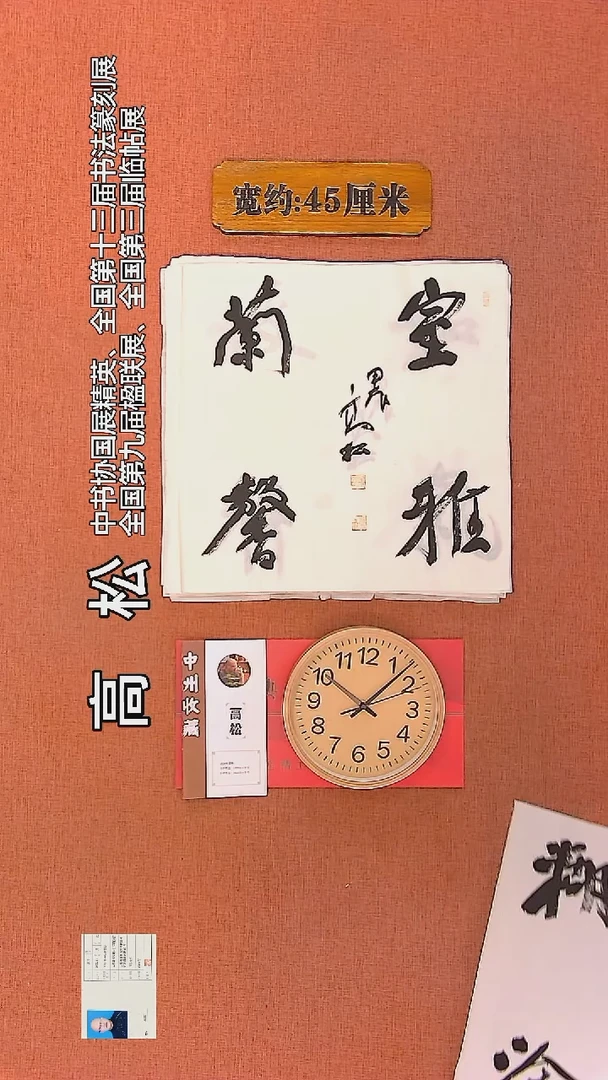 宽约:45厘米
室雅
蘭馨
高松
高 松
中书协国展精英、全国第十三届书法篆刻展
全国第九届楹联展、全国第三届临帖展
高松
12
1
2
3
4
5
6
7
8
9
10
11